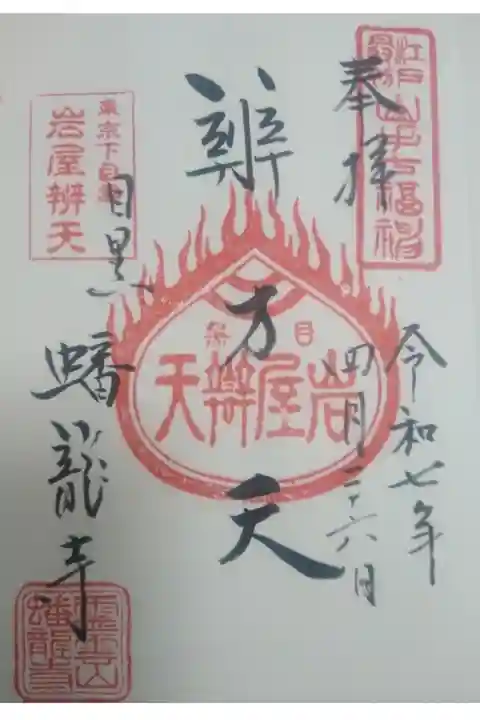 江戸最初山手七福神
奉拝
令和七年
四月二十六日
辨才天
目黒
岩屋辨天
東京下目黒
岩屋辨天
目黒
蟠龍寺
霊雲山
蟠龍寺